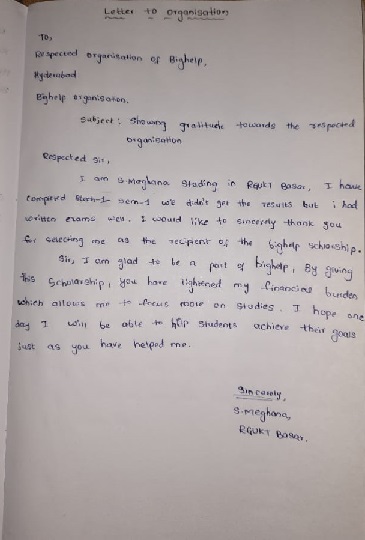 Letter to organisation
To,
Respected organisation of Bighelp,
Hyderabad
Bighelp organisation.
Subject: Showing gratitude towards the respected
organisation
Respected Sir,
I am S.Meghana Studing in RGUKT Basar, I have
completed sem-1 we didn't get the results but i had
written exams well. I would like to sincerely thank you
for selecting me as the recipient of the bighelp schlarship.
Sir, I am glad to be a part of bighelp, By giving
this Scholarship, you have lightened my financial burden
which allows me to focus more on studies. I hope one
day I will be able to help students achieve their goals
just as you have helped me.
Sincerely,
S.Meghana,
RGUKT Basar.